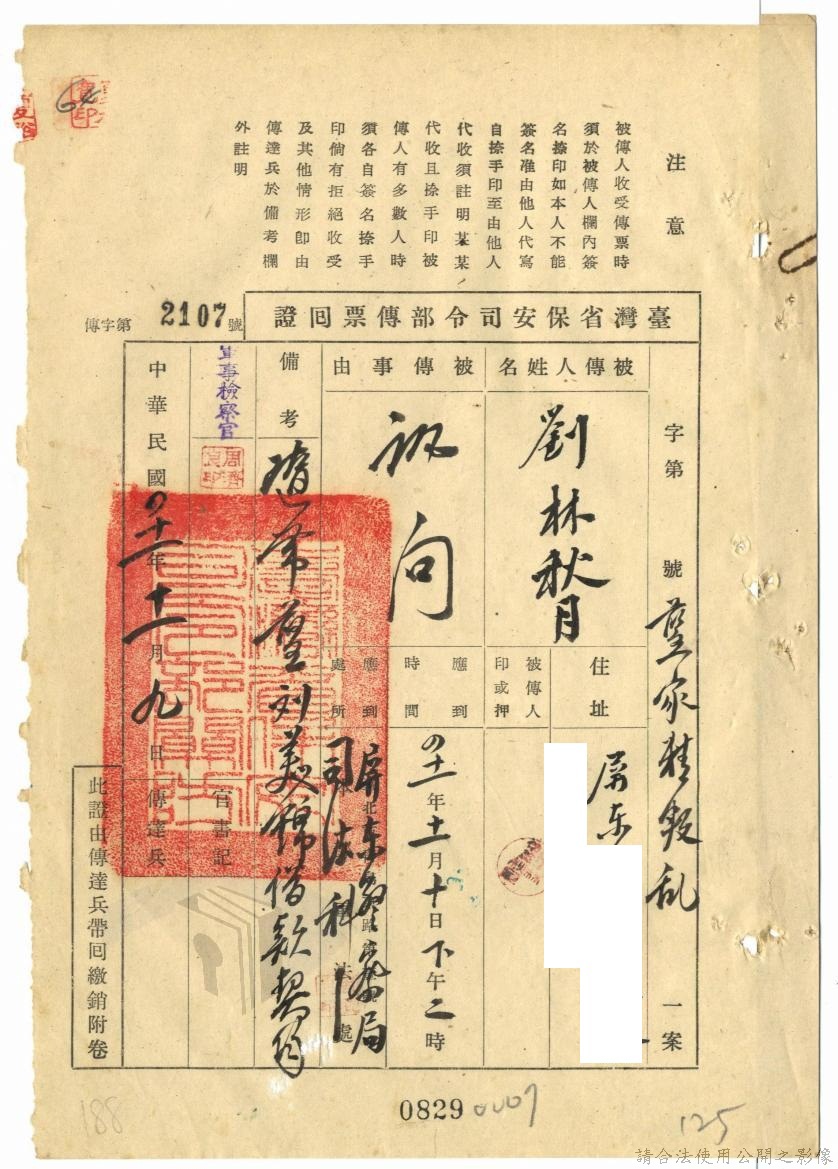 注意
被傳人收受傳票時
須於被傳人欄內簽
名捺印如本人不能
簽名准由他人代寫
自捺手印至由他人
代收須註明某某
代收且捺手印被
傳人有多數人時
須各自簽名捺手
印倘有拒絕收受
及其他情形即由
傳達兵於備考欄
外註明
臺灣省保安司令部傳票回證
傳字第2107號
字第 號 一案
叛乱
被傳人姓名
劉林秋月
住址
屏东
被傳人
印或押
被傳事由
訊问
應到
時間
四十一年十一月十日下午二時
應到
處所
屏东警察局
司法科
備考
随带 刘美錦借款契约
軍事檢察官
官書記
中華民國四十一年十一月九日
傳達兵
此證由傳達兵帶回繳銷附卷
0829
0007
188
125
請合法使用公開之影像